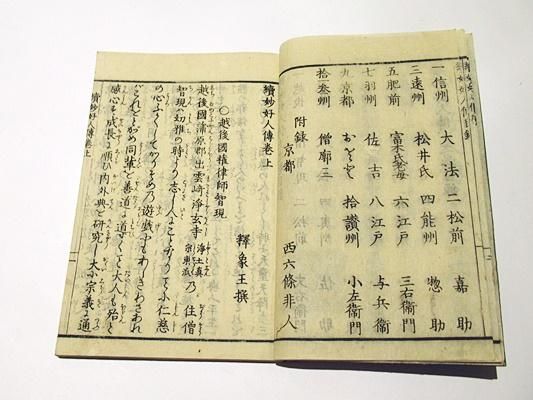 一信州 大法 二松前 嘉助
三遠州 松井氏 四能州 惣助
五肥前 富木氏老母 六江戸 三右衞門
七羽州 佐吉 八江戸 与兵衞
九京都 おとせ 十讃州 小左衞門
拾三州 僧廓三
附録 京都 西六條非人
續妙好人傳卷上
釋象王撰
○越後國權律師智現
越後國蒲原郡出雲崎淨玄寺 淨土真宗東派 乃住僧
智現ハ幼稚の時より志し人にことなりて仁慈
の心ふかくしてかりそめの遊戯にもわしきわざあれ
感心す成長に順ひ内外典を研究し大小宗義に通
續妙好人傳卷上